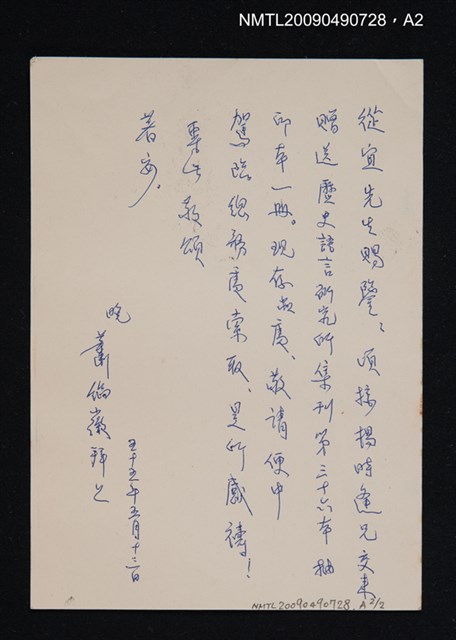 NMTL20090490728，A2
從宜先生賜鑒：頃接楊時逢兄交來
贈送歷史語言研究所集刊第三十六本抽
印本一冊。現存敝處、敬請便中
駕臨總務處索取、是所感禱！
專此敬頌
著安。
晚
蕭 徽拜上
五十五年五月十二日
NMTL20090490728, A2/2